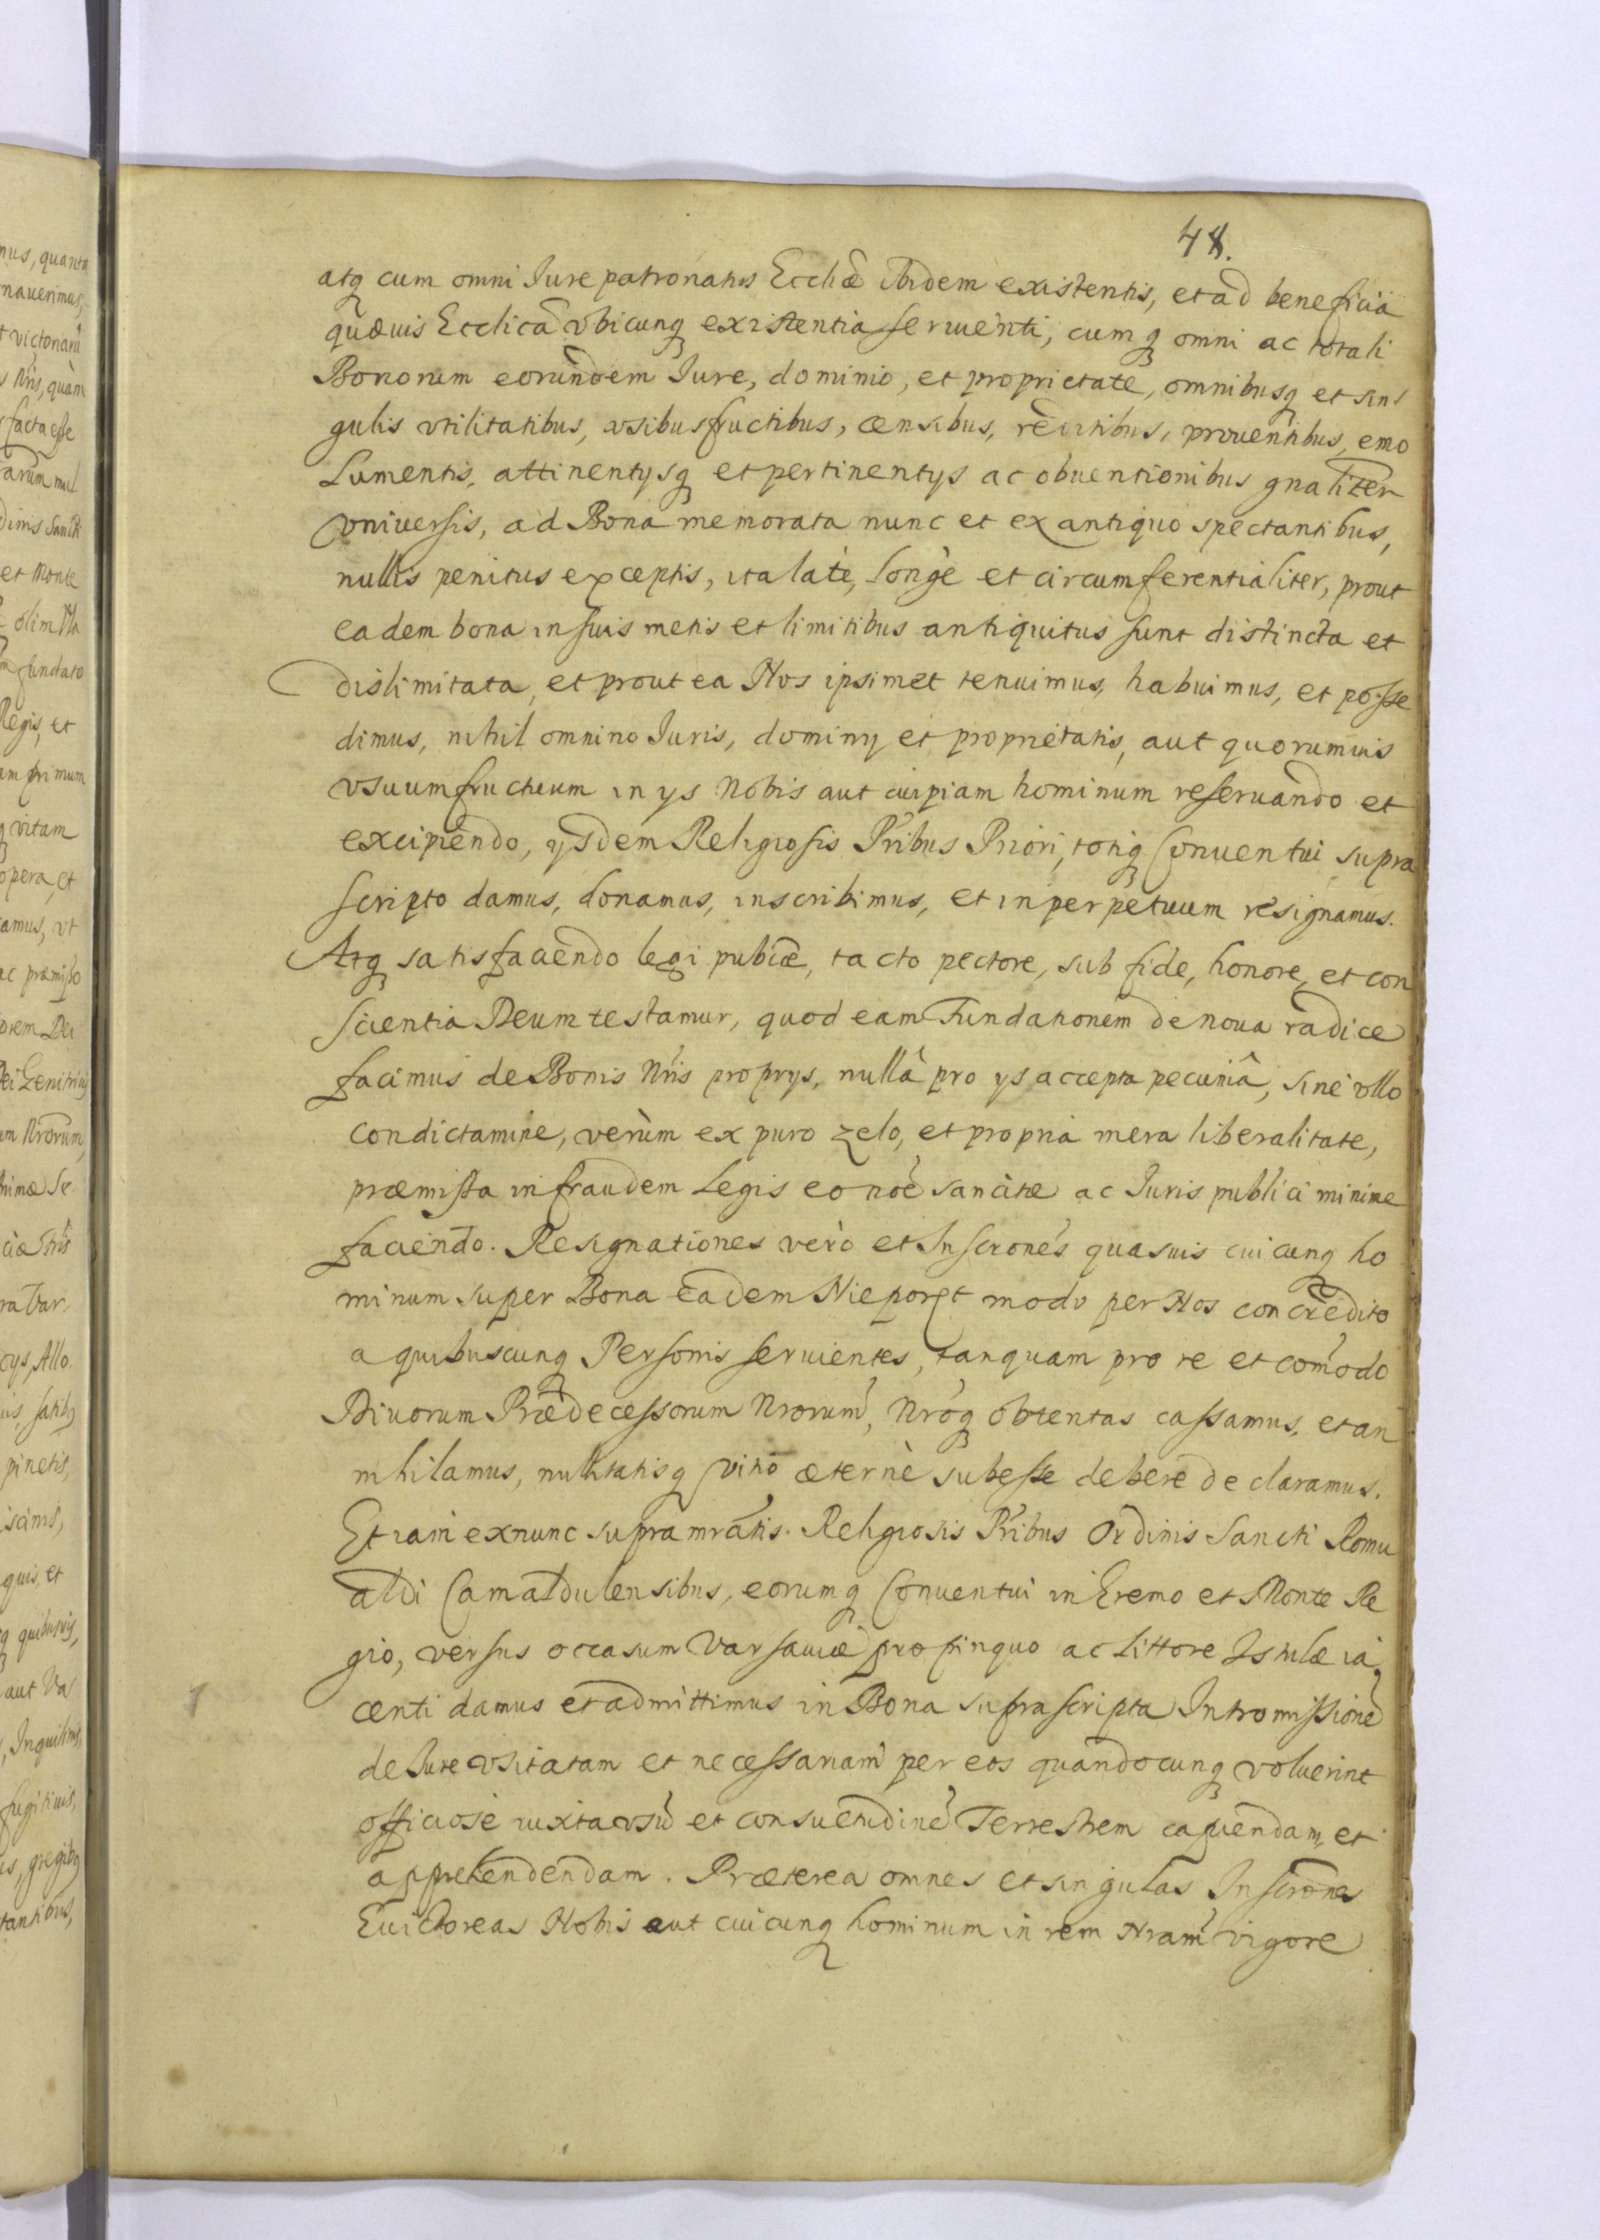 48.
atq cum omni Iure patronatus Ecclīæ ibidem existentis, et ad beneficia
quæuis Ecclīca vbicunq existentia seruienti, cumq omni ac totali
Bonorum eorundem Iure, dominio, et proprietate, omnibusq et sin
gulis vtilitatibus, vsibusfructibus, censibus, redditibus, prouentibus, emo
lumentis, attinentysq et pertinentys ac obuentionibus gnaliter
vniuersis, ad Bona memorata nunc et ex antiquo spectantibus,
nullis penitus exceptis, ita latè, longè et circumferentialiter, prout
eadem bona in suis metis et limitibus antiquitus sunt distincta et
dislimitata, et prout ea Nos ipsimet tenuimus, habuimus, et posse
dimus, nihil omnino Iuris, dominy et proprietatis, aut quorumuis
vsuumfructuum in ys Nobis aut cuipiam hominum reseruando et
excipiendo, ysdem Religiosis Pribus Priori, totiq Conuentui supra
scripto damus, donamus, inscribimus, et in perpetuum resignamus.
Atq satisfaciendo legi publcæ, tacto pectore, sub fide, honore, et con
scientia Deum testamur, quod eam Fundationem de noua radice
facimus de Bonis Nris proprys, nullâ pro ys accepta pecuniâ, sine vllo
condictamine, verùm ex puro zelo, et propria mera liberalitate,
præmissa in fraudem Legis eo noē sancitæ ac Iuris publici minime
faciendo. Resignationes verò et Inscrones quasuis cuicunq ho
minum super Bona eadem Nieporęt modo per Nos concredito
a quibuscunq Personis seruientes, tanquam pro re et comodo
Diuorum Prædecessorum Nrorum, Nroq obtentas cassamus, et an
nihilamus, nullitatisq vitio æternè subesse debere declaramus.
Et iam exnunc supramratis Religiosis Pribus Ordinis Sancti Romu
aldi Camaldulensibus, eorumq Conuentui in Eremo et Monte Re
gio, versus occasum Varsauiæ propinquo ac littore Istulæ ia
centi damus et admittimus in Bona suprascripta Intromissionē
de Iure vsitatam et necessariam per eos quandocunq voluerint
officiose iuxta vsū et consuetudinē Terrestrem capiendam et
apprehendendam. Præterea omnes et singulas Inscrones
Euictoreas Nobis aut cuicunq hominum in rem Nram vigore